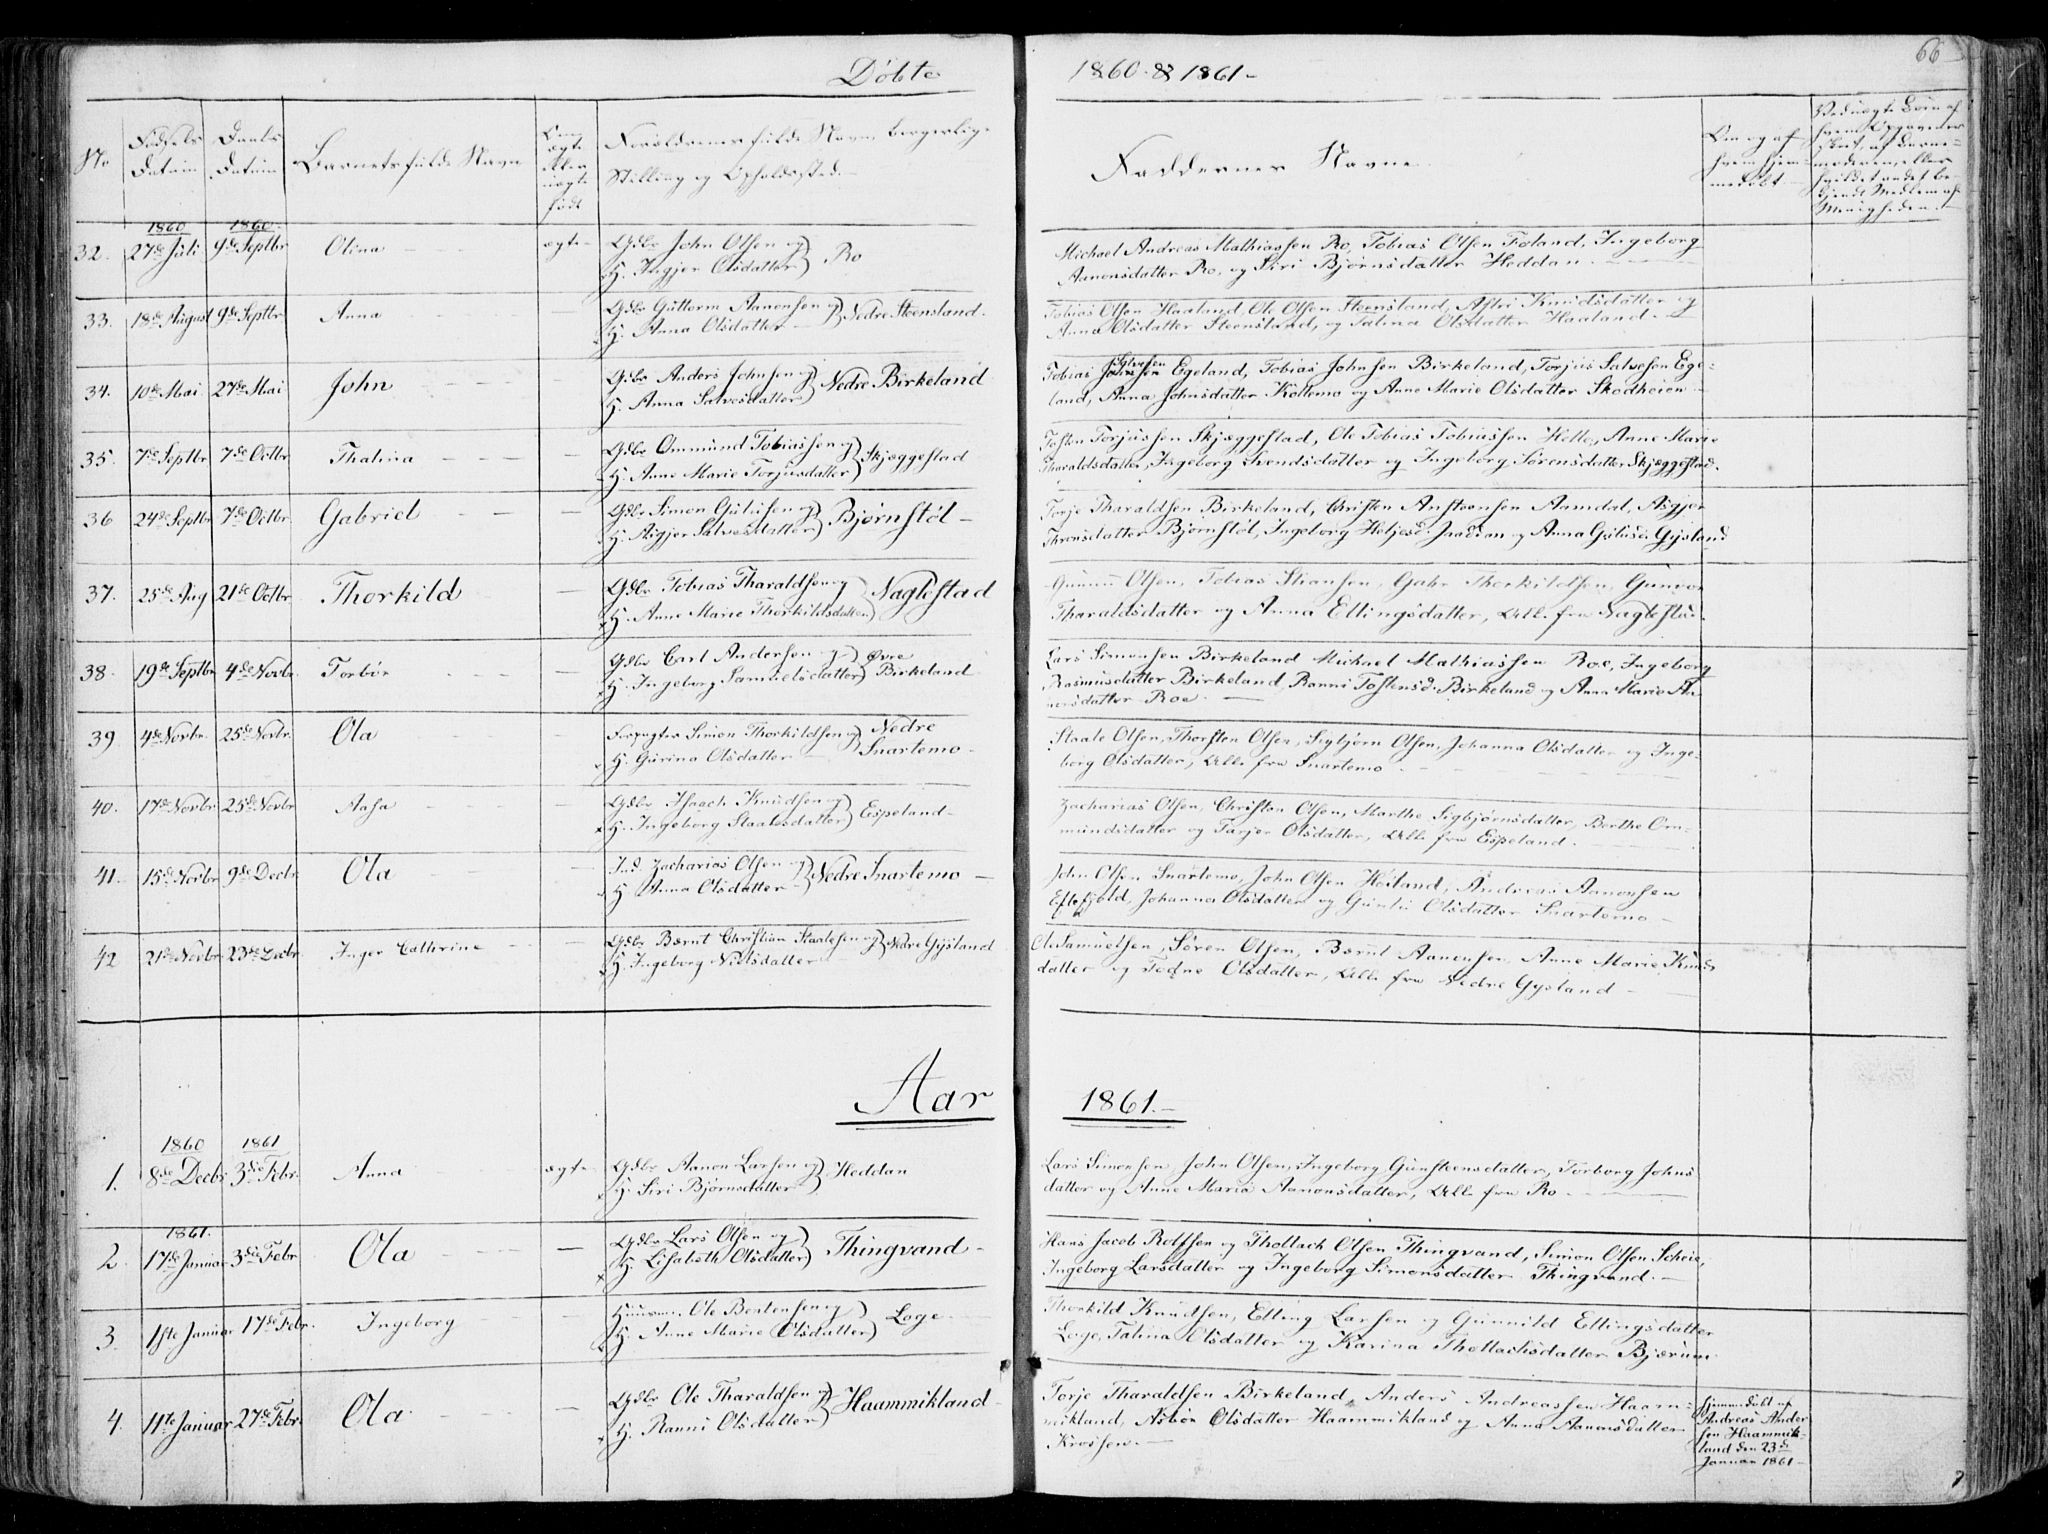 Døbte
1860 & 1861
66
No
Fødsels Datum
Daabs Datum
Barnets fulde Navn
Om ægte eller uægte født
Forældrenes fulde Navn, borgerlige
Stilling og Opholdssted
Faddernes Navne
Om og af hvem hjemmedøbt
1860 1860
32. 27de Juli 9de Septbr Olina ægte Gdbr John Olsen og
H. Ingjer Olsdatter Ro
Michael Andreas Mathiassen Ro, Tobias Olsen Foland, Ingeborg
Aanonsdatter Ro, og Siri Bjørnsdatter Heddan
33. 18de August 9de Septbr Anna Gdbr Guttorm Aanensen og
H. Anna Olsdatter Nedre Steensland
Tobias Olsen Haaland, Ole Olsen Steensland, Astri Knudsdatter og
Anna Olsdatter Steensland, og Talina Olsdatter Haaland.
34. 10de Mai 27de Mai John Gdbr Anders Johnsen og
H. Anna Salvesdatter Nedre Birkeland
Salvesen
Tobias Johnsen Egeland, Tobias Johnsen Birkeland, Torjus Salvesen Ege-
land, Anna Johnsdatter Kollemo og Anne Marie Olsdatter Skodheien
35. 7de Septbr 7de Octbr Thalina Gdbr Ommund Tobiassen og
H. Anne Marie Torjusdatter Skjæggestad
Tosten Torjussen Skjæggestad, Ole Tobias Tobiassen Helle, Anne Marie
Tharaldsdatter, Ingeborg Svendsdatter og Ingeborg Sørensdatter Skjæggestad.
36 24de Septbr 7de Octbr Gabriel Gdbr Simon Gulufsen og
H. Aigjer Salvesdatter Bjørnstøl
Torje Tharaldsen Birkeland, Christen Anstensen Aamdal, Asgjer
Thronsdatter Bjørnstøl, Ingeborg Heljesd. Jaadan og Anna Gulusd. Gysland
37. 25de Aug 21de Octbr Thorkild Gdbr Tobias Tharaldsen og
H. Anne Marie Thorkildsdatter Naglestad
Gunuld Olsen, Tobias Stiansen, Gabr Thorkildsen, Gunvor
Tharaldsdatter og Anna Ellingsdatter, Alle fra Naglestad.
38. 19de Septbr 4de Novbr Torbør Gdbr Carl Andersen og
H. Ingeborg Samuelsdatter Øvre Birkeland
Lars Simonsen Birkeland Michael Mathiassen Roe, Ingeborg
Rasmusdatter Birkeland, Ranni Tostensd. Birkeland og Anna Marie Aa-
nonsdatter Roe.
39. 4de Novbr. 25de Novbr. Ola Forpagter Simon Thorkildsen og
H. Gurina Olsdatter Nedre Snartemo
Staale Olsen, Thorsten Olsen, Sigbjørn Olsen, Johanna Olsdatter og Inge-
borg Olsdatter, Alle fra Snartemo
40. 17de Novbr 25de Novbr Aasa Gdbr Isaach Knudsen og
H. Ingeborg Staalesdatter Espeland
Zacharias Olsen, Christen Olsen, Marthe Sigbjørnsdatter, Berthe Om-
mundsdatter og Tarjer Olsdatter, Alle fra Espeland.
41. 15de Novbr 9de Decbr Ola Ind. Zacharias Olsen og
H. Anna Olsdatter Nedre Snartemo
John Olsen Snartemo, John Olsen Høiland, Andreas Aanensen
Eftestøld, Johanna Olsdatter og Gunlu Olsdatter Snartemo
42 21de Novbr 23de Decbr Inger Cathrine Gdbr Bærnt Christian Staalesen og
H. Ingeborg Nielsdatter Nedre Gysland
Ole Samuelsen, Søren Olsen, Bærnt Aanensen, Anne Marie Knuds
datter og Tedne Olsdatter, Alle fra Nedre Gysland
Aar 1861.
1860 1861
1. 8de Decbr 3die Febr. Anna ægte Gdbr Aanon Larsen og
H. Siri Bjørnsdatter Heddan
Lars Simonsen, John Olsen, Ingeborg Gunsteensdatter, Torborg Johns
datter og Anne Maria Aanonsdatter, Alle fra Ro
1861.
2. 17de Januar 3die Febr Ola Gdbr Lars Olsen og
H. Lisabeth Olsdatter Thingvand
Hans Jacob Rolfsen og Thollach Olsen Thingvand, Simon Olsen Scheie,
Ingeborg Larsdatter og Ingeborg Simonsdatter Thingvand.
3. 1ste Januar 17de Febr. Ingeborg Huusm. Ole Bentensen og
H. Anne Marie Olsdatter Loge
Thorkild Knudsen, Elling Larsen og Gunnild Ellingsdatter
Loge, Talina Olsdatter og Karina Thollachsdatter Bjærum
4. 11te Januar 27de Febr. Ola. Gdbr Ole Tharaldsen og
H. Ranni Olsdatter Haammikland
Torje Tharaldsen Birkeland, Anders Andreassen Haam-
mikland, Asbør Olsdatter Haammikland og Anna Aanonsdatter
Krossen.
hjemmedøbt af
Andreas Ander
sen Haammik-
land den 23de
Januar 1861